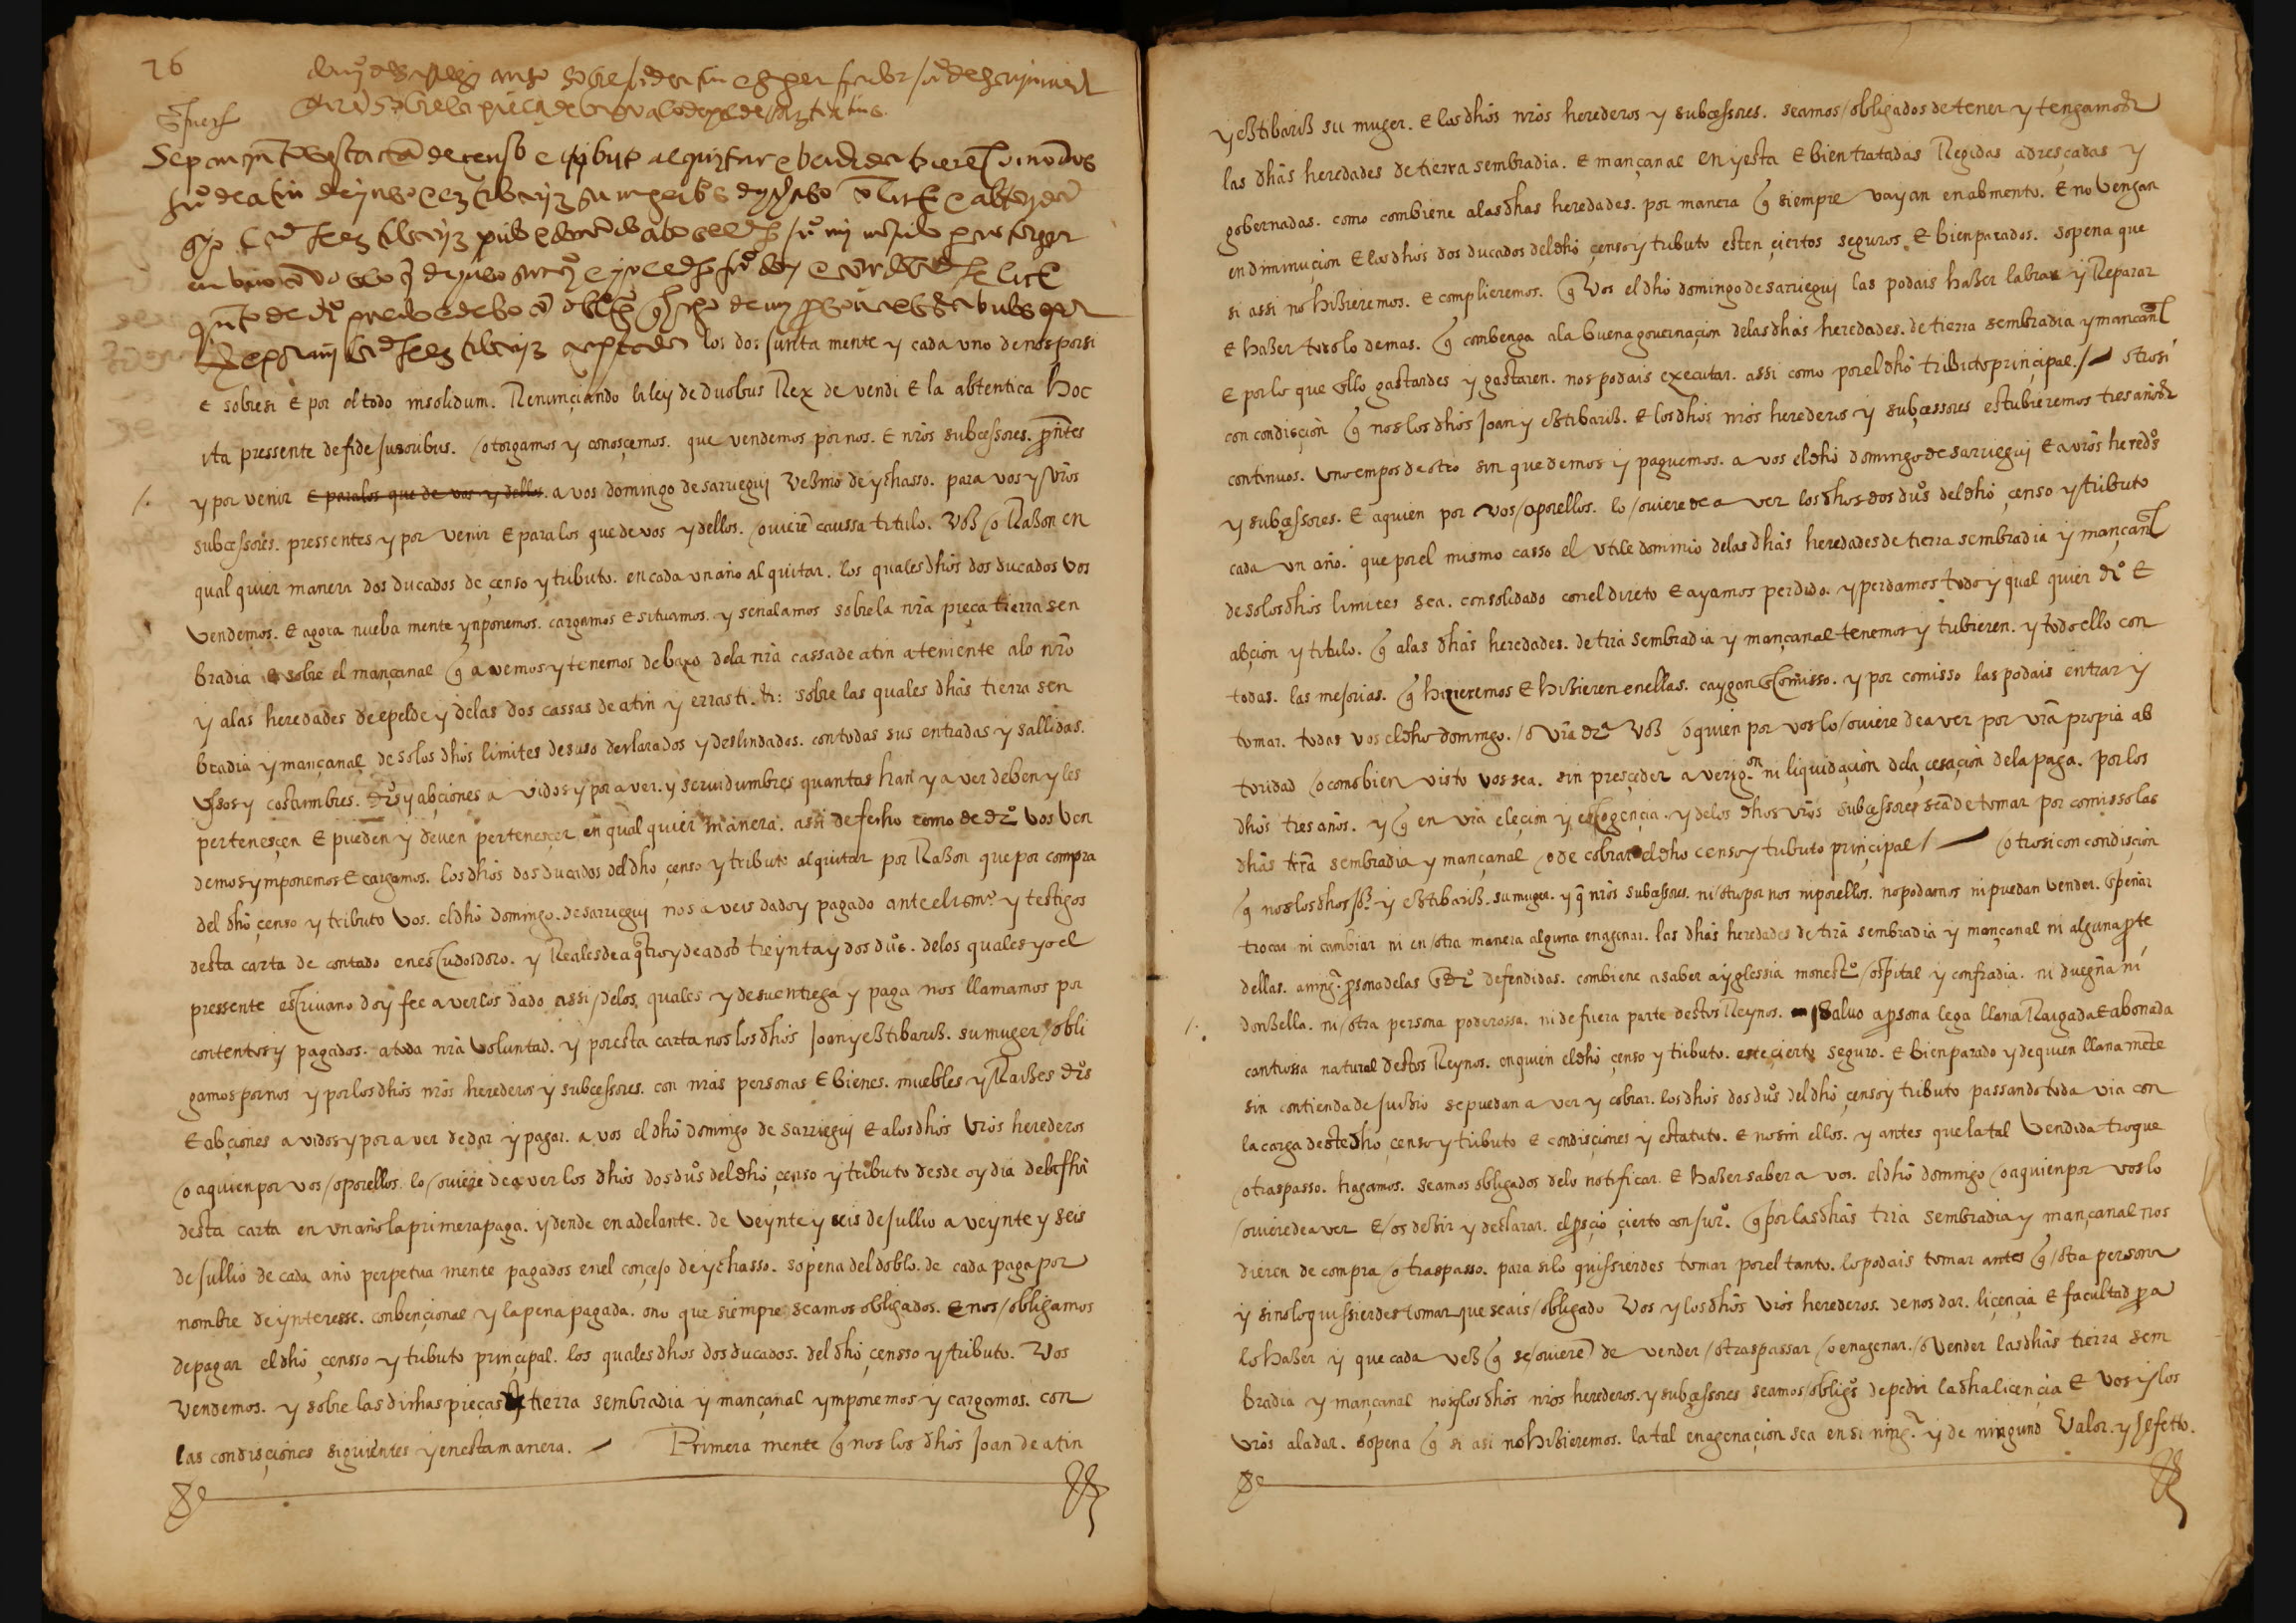 26
Sepan quantos esta carta de censo e tributo al quitar e bendida vieren como nos
los dos junta mente y cada uno de nos por si
e sobre si e por el todo insolidum. Renunçiando la ley de duobus Rex de vendi E la abtentica hoc
ita pressente de fide jusoribus. otorgamos y conosçemos. que vendemos por nos. E nr̄os subcessores. p̄ntes
y por venir E para los que de vos y dellos. a vos domingo de sarriegui Vezino de ychasso. para vos y Vr̄os
subcessores. pressentes y por venir E para los que de vos y dellos. oviere caussa titulo. Voz o Razon en
qual quier manera dos ducados de çenso y tributo. en cada un año al quitar. los quales dhōs dos ducados Vos
Vendemos. E agora nueba mente ynponemos. cargamos E situamos. y senalamos sobre la nrā pieça tierra sen
bradia E sobre el mançanal q̄ avemos y tenemos debaxo dela nrā cassa de atin ateniente alo nrō
y alas heredades de epelde y delas dos cassas de atin y errasti. &: sobre las quales dhās tierra sen
bradia y mançanal de solos dhōs limites desuso declarados y deslindados. con todas sus entradas y sallidas.
Vssos y costumbres. dr̄os y abçiones avidos y por aver. y seruidumbres quantas han y aver deben y les
pertenesçen E pueden y deven pertenesçer en qual quier manera. assi de fecho como de dr̄o Vos Ven
demos ymponemos E cargamos. los dhōs dos ducados del dhō çenso y tributo al quitar por Razon que por compra
del dhō çenso y tributo Vos. el dhō domingo. de sarriegui nos aveis dado y pagado ante el es.no y testigos
desta carta de contado en escudos doro. y Reales de a quatro y de a dos treynta y dos duos. delos quales yo el
pressente escrivano doy fee averlos dado assi / delos quales y de su entrega y paga nos llamamos por
contentos y pagados. a toda nrā Voluntad. y por esta carta nos los dhōs Joan y eztibariz. su muger / obli
gamos por nos y por los dhōs nrōs herederos y subcessores. con nrās personas E bienes. muebles y Raizes dr̄os
E abçiones avidos y por aver de dar y pagar. a vos el dhō domingo de sarriegui E a los dhōs Vrōs herederos
o a quien por vos / o por ellos. lo / oviere de aver los dhōs dos duos del dhō çenso y tributo desde oy dia dela fhā
desta carta en un año la primera paga. y dende en adelante. de veynte y seis de jullio a veynte y seis
de jullio de cada año perpetua mente pagados en el conçejo de ychasso. so pena del doblo. de cada paga por
nombre de ynteresse. conbençional y la pena pagada. o no que siempre seamos obligados. E nos / obligamos
de pagar el dhō çensso y tributo prinçipal. los quales dhos dos ducados. del dhō çensso y tributo. Vos
Vendemos. y sobre las dichas pieças de tierra sembradia y mançanal ymponemos y cargamos. con
las condisçiones siguientes y en esta manera. Primera mente q̄ nos los dhōs Joan de atin
y eztibariz su muger. E los dhōs nrōs herederos y subcessores. seamos / obligados de tener y tengamos
las dhās heredades de tierra sembradia. E mançanal en yesta E bien tratadas Regidas adresçadas y
gobernadas. como combiene alas dhas heredades. por manera q̄ siempre vayan en abmento. E no vengan
en diminuçion E los dhōs dos ducados del dhō çenso y tributo esten çiertos seguros. E bien parados. so pena que
si assi no hizieremos. E complieremos. q̄ Vos el dhō domingo de sarriegui las podais hazer labrar y Reparar
E hazer todo lo demas. q̄ combenga ala buena gouernaçion delas dhās heredades. de tierra sembradia y mançanal
E por lo que ello gastardes y gastaren. nos podais executar. assi como por el dhō tributo prinçipal. otrosi
con condisçion q̄ nos los dhōs Joan y eztibariz. E los dhōs nrōs herederos y subçessores estubieremos tres años
continuos. uno empos de otro sin que demos y paguemos. a vos el dhō domingo de sarriegui E a vrōs heredos
y subçessores. E a quien por vos / o por ellos. lo / oviere de aver los dhos dos duos del dhō çenso y tributo
cada un año. que por el mismo casso el utile dominio delas dhās heredades de tierra sembradia y mançanal
de solos dhōs limites sea. consolidado con el direto E ayamos perdido. y perdamos todo y qual quier dr̄o E
abçion y titulo. q̄ alas dhās heredades. de trrā sembradia y mançanal tenemos y tubieren. y todo ello con
todas. las mejorias. q̄ hizieremos E hizieren en ellas. caygan en comisso. y por comisso las podais entrar y
tomar. todas vos el dho domingo. o Vrā Voz o quien por vos lo / oviere de aver por vrā propia ab
toridad o como bien visto vos sea. sin presçeder averig.on ni liquidaçion dela çesaçion dela paga. por los
dhōs tres años. y q̄ en vrā eleçion y escogençia. y delos dhos vrōs subcessores sea de tomar por comisso las
dhās trrā sembradia y mançanal o de cobrar el dho censo y tributo prinçipal otrosi con condisçion
q̄ nos los dhos Jo.n y eztibariz. su muger. y q̄ nrōs subçessores. ni otro por nos ni por ellos. no podamos ni puedan vender. enpeñar
trocar ni cambiar ni en / otra manera alguna enagenar. las dhās heredades de trrā sembradia y mançanal ni alguna p̄te
dellas. a ning.a p̄sona delas en dr̄o defendidas. combiene a saber a yglessia monest.o / ospital y confradia. ni duegña ni
donzella. ni / otra persona poderossa. ni de fuera parte destos Reynos. salvo a p̄sona lega llana Raygada E abonada
cantiossa natural destos Reynos. en quien el dhō çenso y tributo. este çierto seguro. E bien parado y de quien llana mente
sin contienda de juizio se puedan aver y cobrar. los dhōs dos duos del dhō çenso y tributo passando toda via con
la carga deste dhō çenso y tributo E condisçiones y estatuto. E no sin ellos. y antes que la tal Vendida troque
o traspasso. hagamos. seamos obligados delo notificar. E hazer saber a vos. el dhō domingo / o a quien por vos lo
/ oviere de aver E / os dezir y declarar. el p̄sçio çierto con jur.o. q̄ por las dhās trrā sembradia y mançanal nos
dieren de compra / o traspasso. para si lo quissierdes tomar por el tanto. lo podais tomar antes q̄ / otra persona
y si no lo quissierdes tomar que seais / obligado Vos y los dhōs vrōs herederos. de nos dar. liçençia E facultad p̄a
lo hazer y que cada vez q̄ se / oviere de vender / o traspassar / o enagenar. / o Vender las dhās tierra sem
bradia y mançanal nos los dhōs nrōs herederos. y subçessores seamos / oblig.os de pedir la dha licençia E vos y los
vrōs a la dar. so pena q̄ si asi no hizieremos. la tal enagenaçion sea en si ning.a y de ninguno Valor. y efetto.